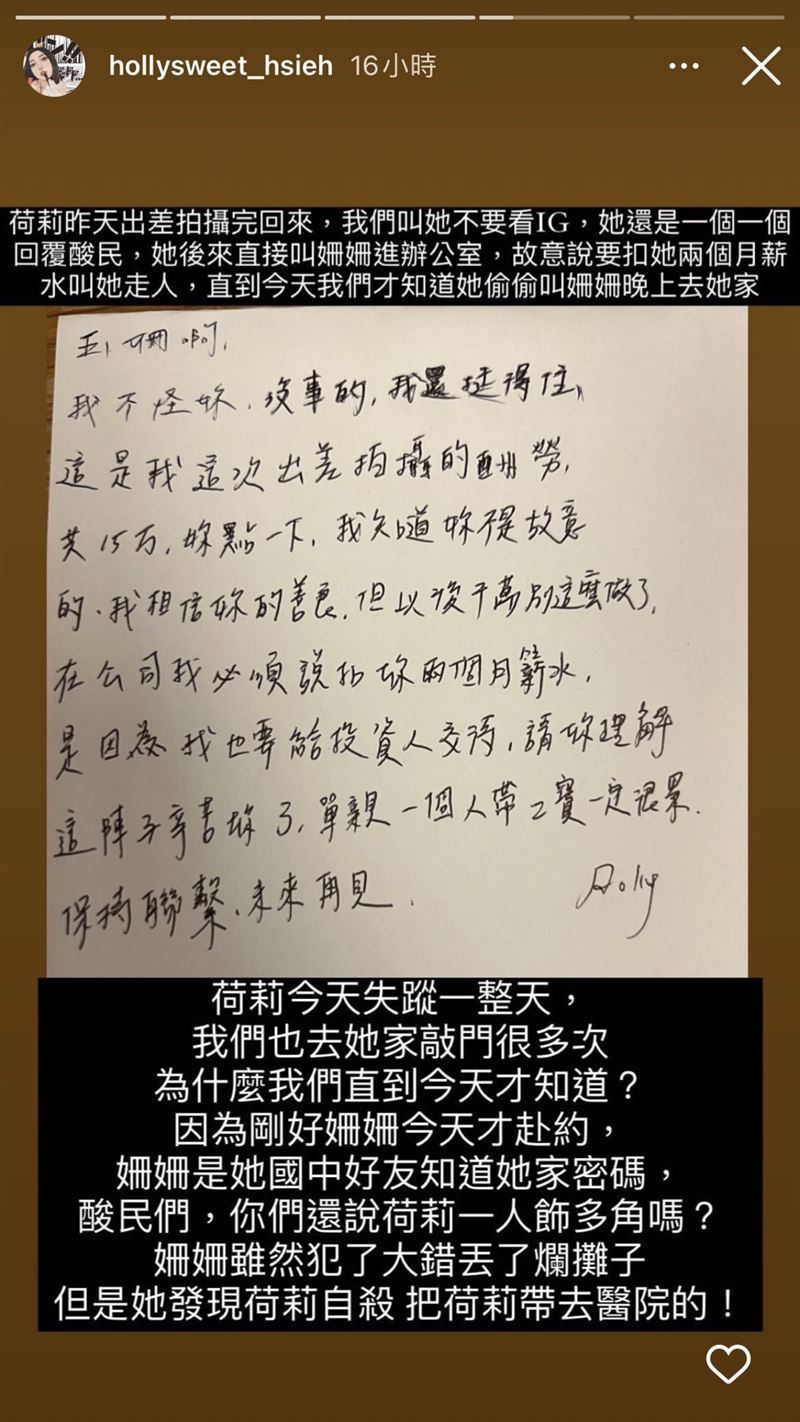 hollysweet_hsieh 16小時
荷莉昨天出差拍攝完回來，我們叫她不要看IG，她還是一個一個
回覆酸民，她後來直接叫姍姍進辦公室，故意說要扣她兩個月薪
水叫她走人，直到今天我們才知道她偷偷叫姍姍晚上去她家
玉姍啊,
我不怪妳、沒事的,我還挺得住,
這是我這次出差拍攝的酬勞,
共15万,妳點一下,我知道妳不是故意
的、我相信妳的善良,但以後千萬別這麼做了,
在公司我必須說扣妳兩個月薪水,
是因為我也要給投資人交待,請妳理解
這陣子辛苦妳了,單親一個人帶2寶一定很累.
保持聯繫、未來再見.
Holly
荷莉今天失蹤一整天，
我們也去她家敲門很多次
為什麼我們直到今天才知道？
因為剛好姍姍今天才赴約，
姍姍是她國中好友知道她家密碼，
酸民們，你們還說荷莉一人飾多角嗎？
姍姍雖然犯了大錯丟了爛攤子
但是她發現荷莉自殺 把荷莉帶去醫院的！